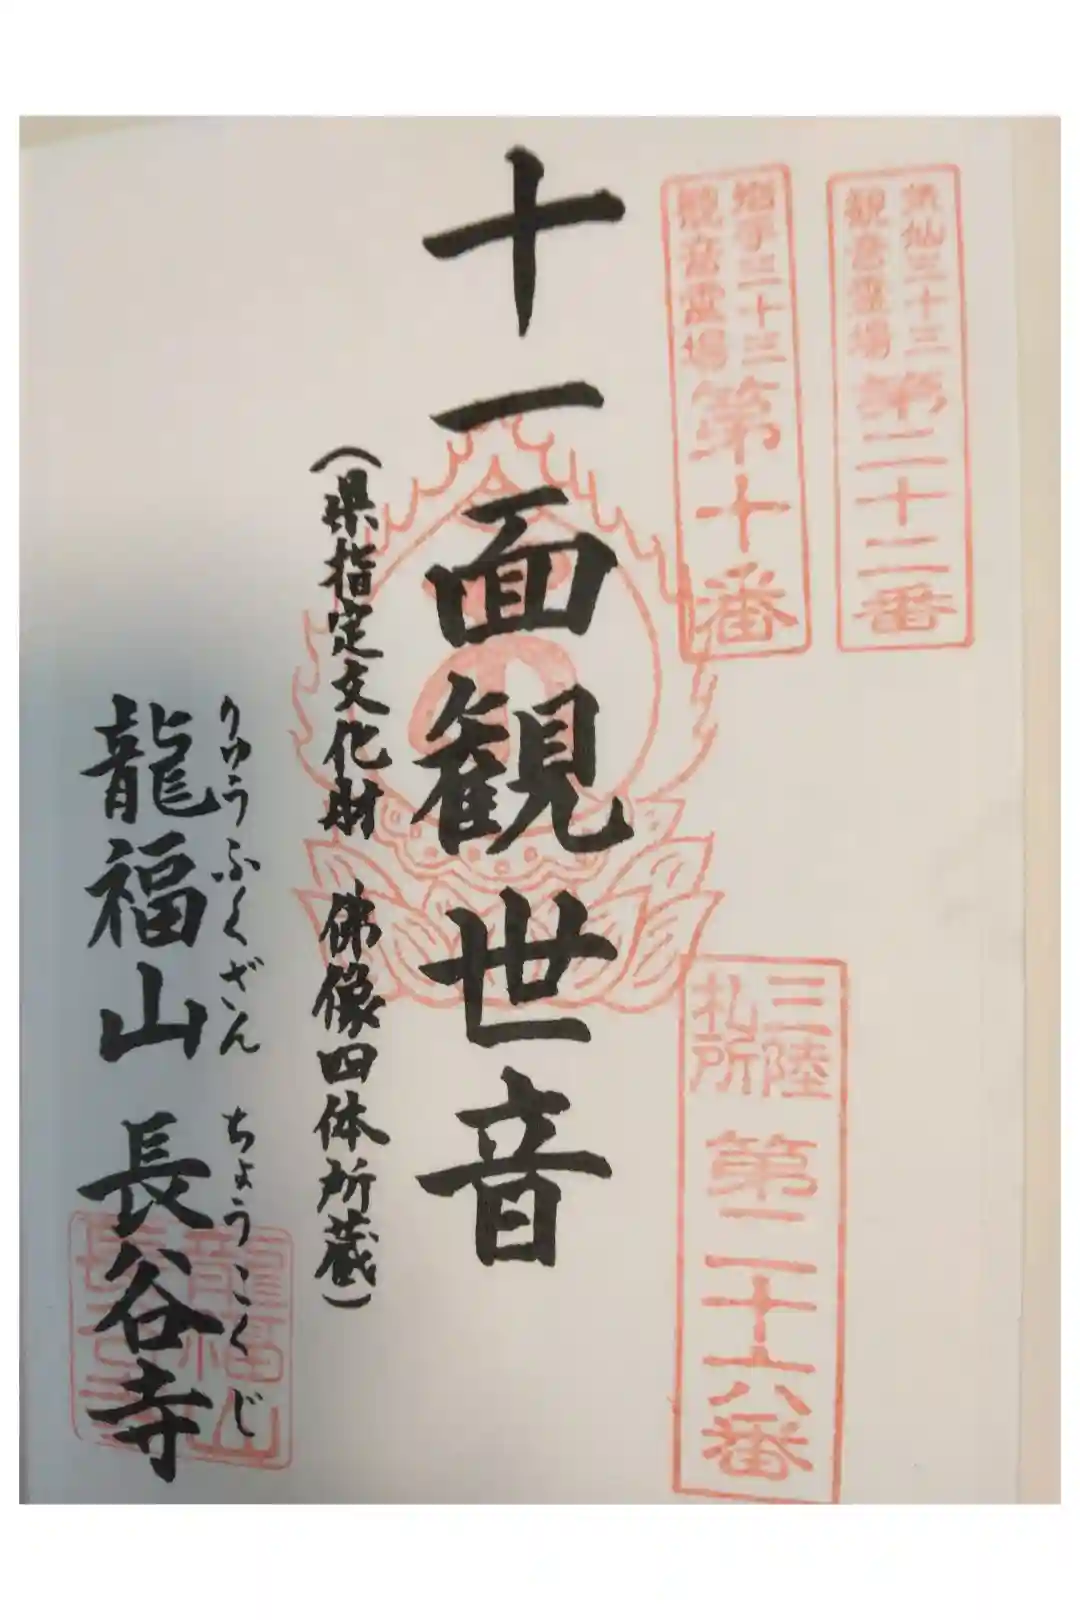 気仙三十三
観音霊場
第二十二番
奥州三十三
観音霊場
第十番
三陸
札所
第二十六番
十一面観世音
(県指定文化財 佛像四体所蔵)
りゅうふくざん ちょうこくじ
龍福山 長谷寺
龍福山
長谷寺